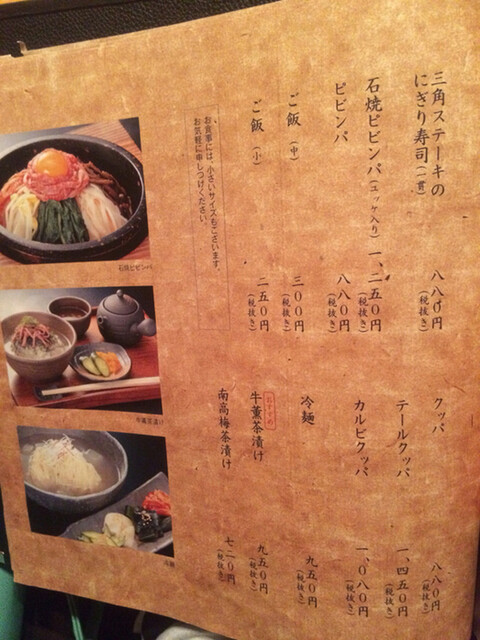 三角ステーキの
にぎり寿司(一貫)
八八〇円
(税抜き)
石焼ビビンバ(ユッケ入り)
一、二五〇円
(税抜き)
ビビンバ
八八〇円
(税抜き)
ご飯(中)
三〇〇円
(税抜き)
ご飯(小)
二五〇円
(税抜き)
お食事には、小さいサイズもございます。
お気軽に申しつけください。
クッパ
八八〇円
(税抜き)
テールクッパ
一、四五〇円
(税抜き)
カルビクッパ
一、〇八〇円
(税抜き)
冷麺
九五〇円
(税抜き)
おすすめ
牛薫茶漬け
九五〇円
(税抜き)
南高梅茶漬け
七二〇円
(税抜き)
石焼ビビンバ
牛薫茶漬け
冷麺